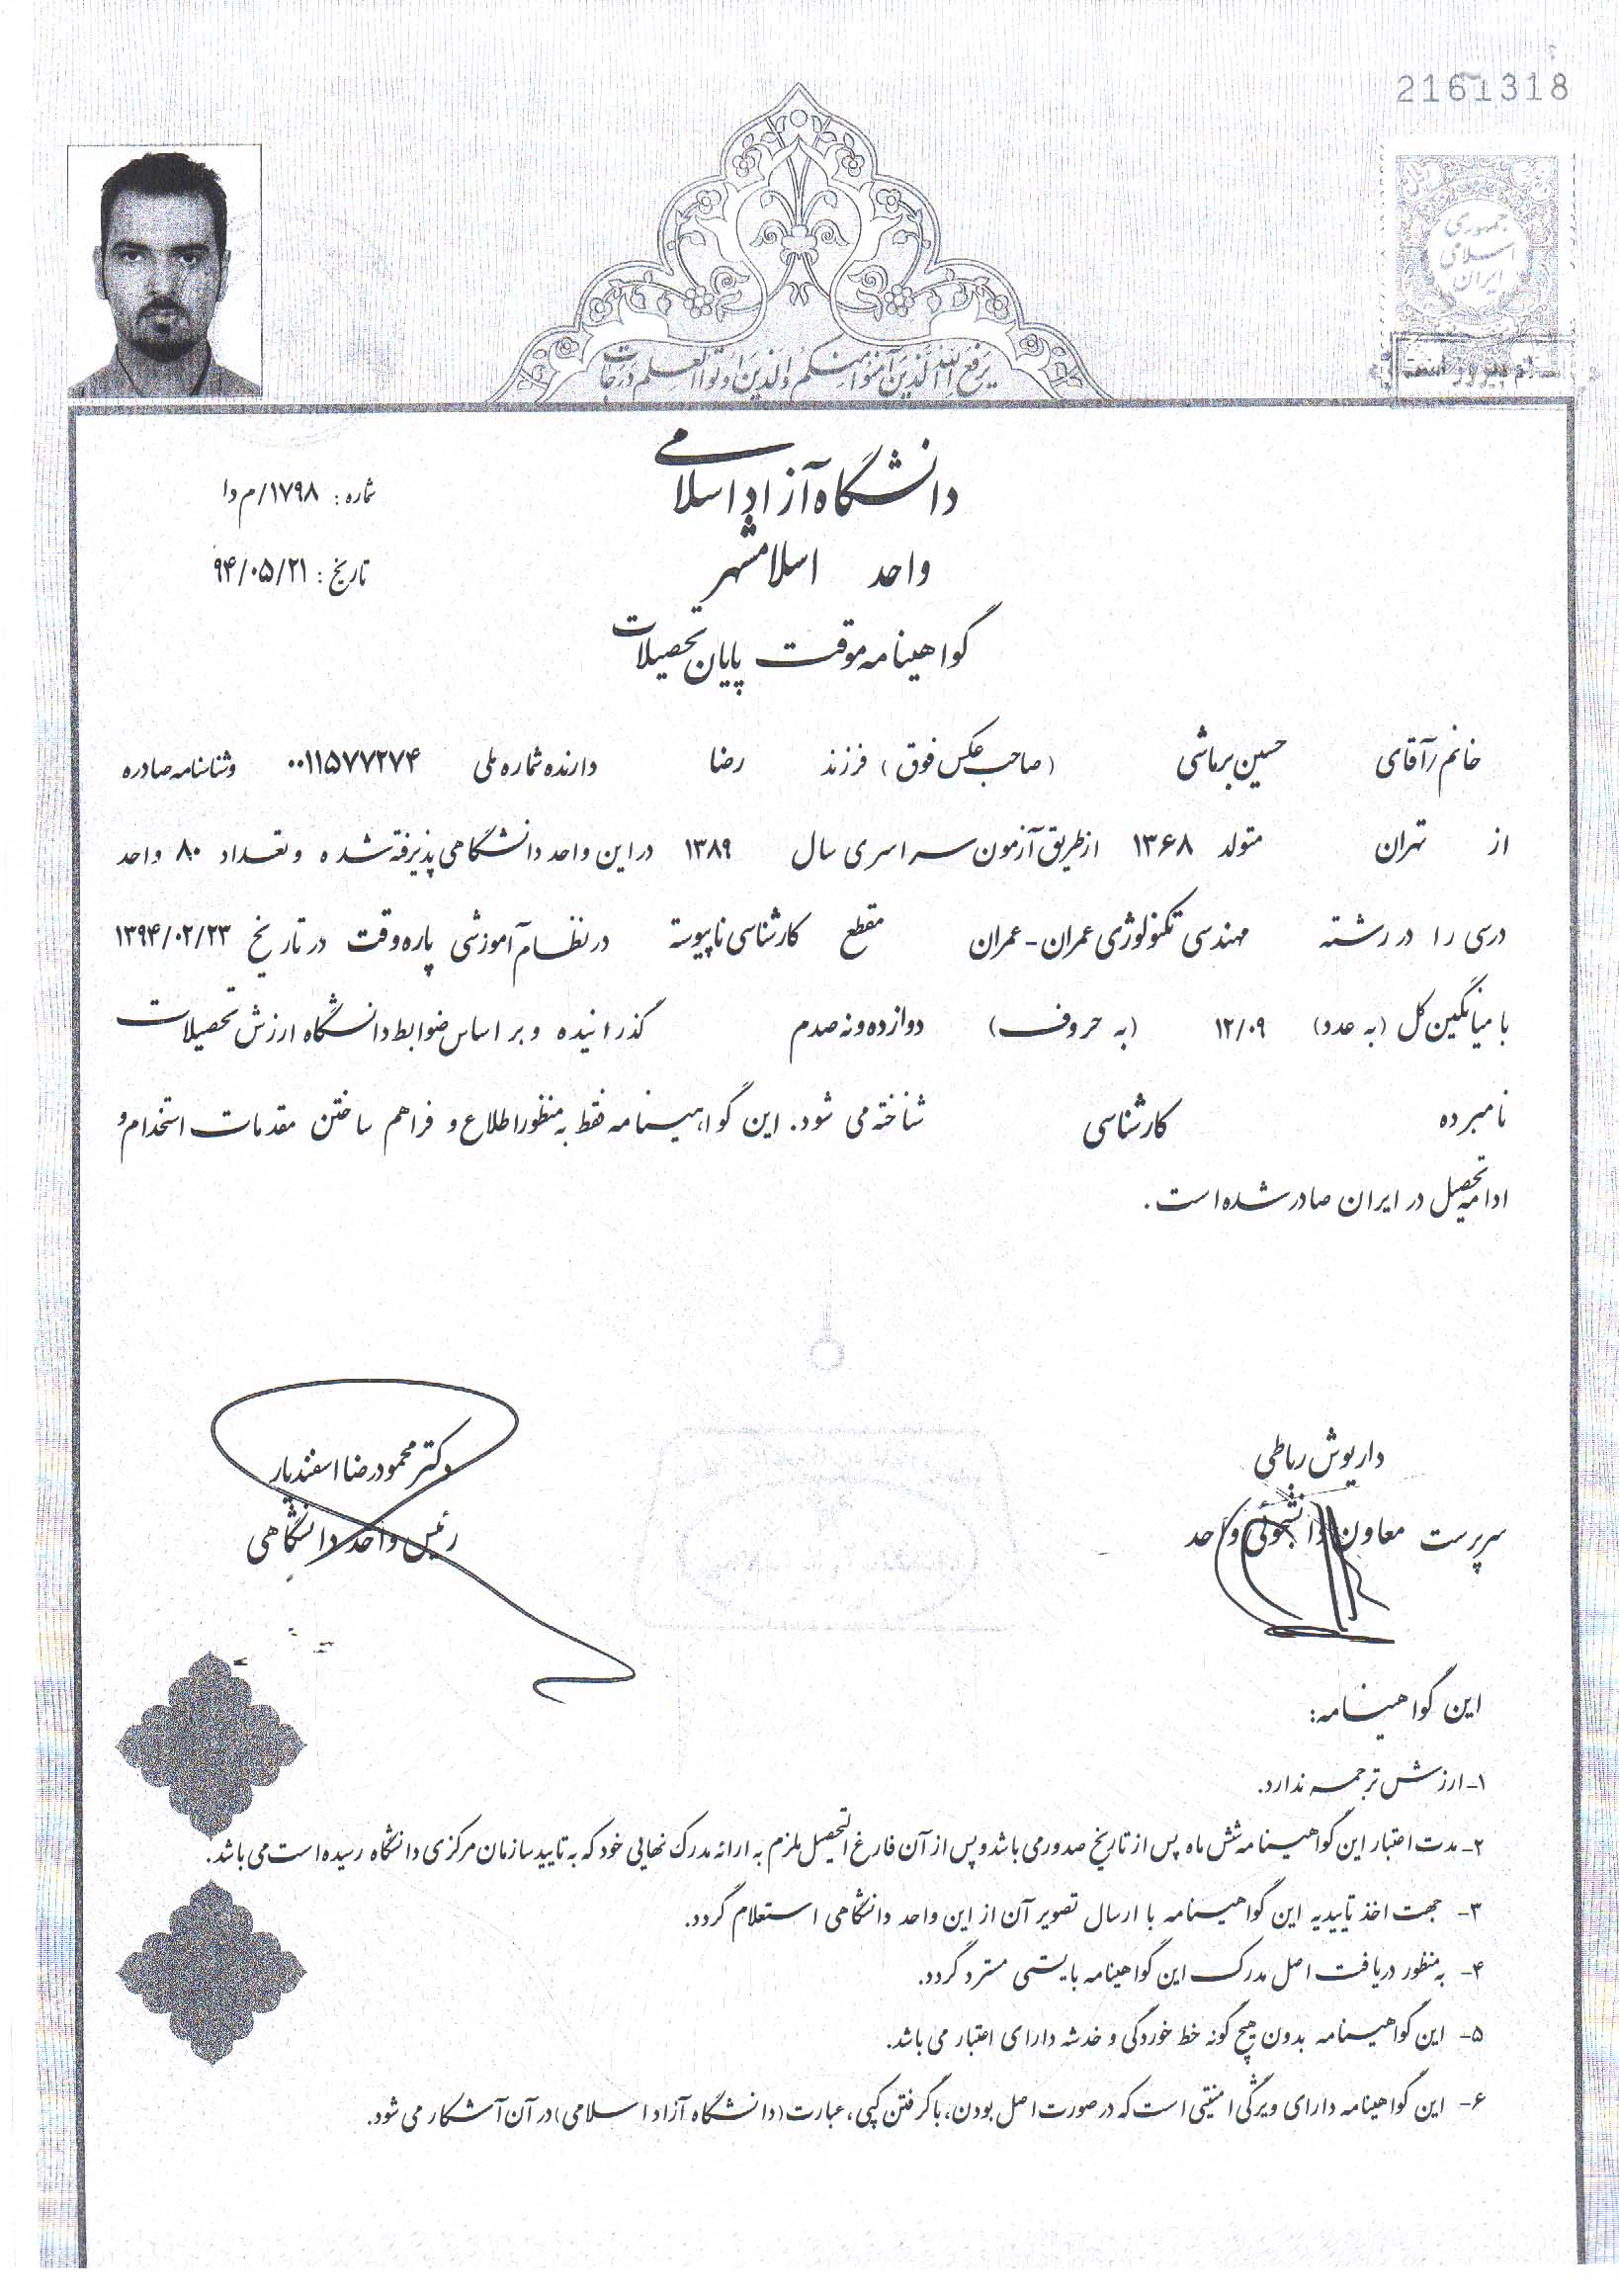 2161318
جمهوری
اسلامی
ایران
یرفع الله الذین آمنوا منکم والذین اوتوا العلم درجات
دانشگاه آزاد اسلامی
شماره : ۱۷۹۸/م دا
واحد اسلامشهر
تاریخ : ۹۴/۰۵/۲۱
گواهینامه موقت پایان تحصیلات
خانم/آقای حسین برماشی (صاحب عکس فوق) فرزند رضا دارنده شماره ملی ۰۰۱۱۵۷۷۲۷۴ وشناسنامه صادره
از تهران متولد ۱۳۶۸ از طریق آزمون سراسری سال ۱۳۸۹ در این واحد دانشگاهی پذیرفته شده و تعداد ۸۰ واحد
درسی را در رشته مهندسی تکنولوژی عمران-عمران مقطع کارشناسی ناپیوسته در نظام آموزشی پاره وقت در تاریخ ۱۳۹۴/۰۲/۲۳
با میانگین کل (به عدد) ۱۲/۰۹ (به حروف) دوازده و نه صدم گذرانیده و بر اساس ضوابط دانشگاه ارزش تحصیلات
نامبرده کارشناسی شناخته می شود. این گواهینامه فقط به منظور اطلاع و فراهم ساختن مقدمات استخدام و
ادامه تحصیل در ایران صادر شده است.
داریوش رباطی
سرپرست معاون دانشجوئی واحد
دکتر محمودرضا اسفندیار
رئیس واحد دانشگاهی
این گواهینامه:
۱- ارزش ترجمه ندارد.
۲- مدت اعتبار این گواهینامه شش ماه پس از تاریخ صدور می باشد و پس از آن فارغ التحصیل ملزم به ارائه مدرک نهایی خود که به تایید سازمان مرکزی دانشگاه رسیده است می باشد.
۳- جهت اخذ تاییدیه این گواهینامه با ارسال تصویر آن از این واحد دانشگاهی استعلام گردد.
۴- به منظور دریافت اصل مدرک این گواهینامه بایستی مسترد گردد.
۵- این گواهینامه بدون هیچ گونه خط خوردگی و خدشه دارای اعتبار می باشد.
۶- این گواهینامه دارای ویژگی امنیتی است که در صورت اصل بودن، با گرفتن کپی، عبارت (دانشگاه آزاد اسلامی) در آن آشکار می شود.